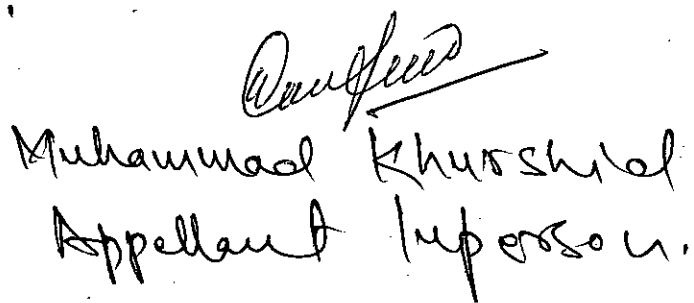 Muhammad Khurshid
Appellant Inperson.